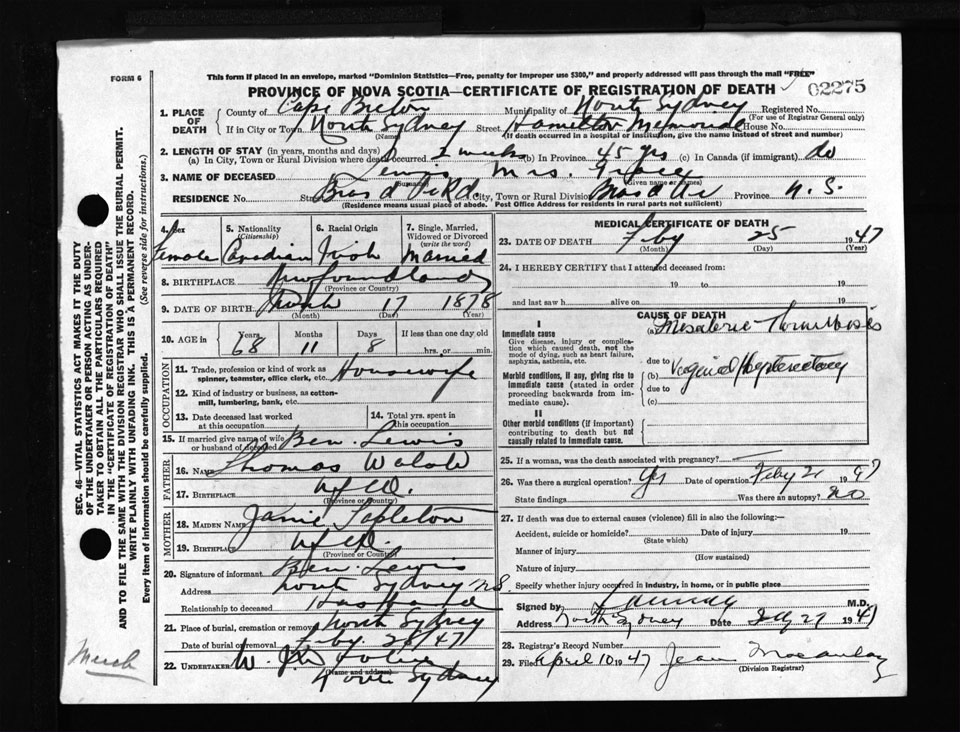 FORM 6
This form if placed in an envelope, marked "Dominion Statistics—Free, penalty for improper use $300," and properly addressed will pass through the mail "FREE"
PROVINCE OF NOVA SCOTIA—CERTIFICATE OF REGISTRATION OF DEATH
02275
1. PLACE OF DEATH
County of Cape Breton Municipality of North Sydney Registered No.
(For use of Registrar General only)
If in City or Town North Sydney Street Hamilton Memorial House No.
(Name) (If death occurred in a hospital or institution, give the name instead of street and number)
2. LENGTH OF STAY (in years, months and days)
(a) In City, Town or Rural Division where death occurred 2 weeks (b) In Province 45 yrs (c) In Canada (if immigrant) do
3. NAME OF DECEASED Lewis Mrs. Grace
(Surname) (Given name or names)
RESIDENCE No. Street Bras d'Or Rd. City, Town or Rural Division Bras d'Or Province N.S.
(Residence means usual place of abode. Post Office Address for residents in rural parts not sufficient)
4. Sex
5. Nationality (Citizenship)
6. Racial Origin
7. Single, Married, Widowed or Divorced (write the word)
Female Canadian Irish Married
8. BIRTHPLACE Newfoundland
(Province or Country)
9. DATE OF BIRTH March 17 1878
(Month) (Day) (Year)
10. AGE in Years Months Days If less than one day old
68 11 8 hrs. or min.
OCCUPATION
11. Trade, profession or kind of work as spinner, teamster, office clerk, etc. Housewife
12. Kind of industry or business, as cotton-mill, lumbering, bank, etc.
13. Date deceased last worked at this occupation
14. Total yrs. spent in this occupation
15. If married give name of wife or husband of deceased Ben. Lewis
FATHER
16. Name Thomas Walsh
17. Birthplace Nfld.
(Province or Country)
MOTHER
18. Maiden Name Janie Tapleton
19. Birthplace Nfld.
(Province or Country)
20. Signature of informant Ben. Lewis
Address North Sydney N.S.
Relationship to deceased Husband
21. Place of burial, cremation or removal North Sydney
Date of burial or removal Feby. 28/47
22. Undertaker W. J.
(Name and address)
North Sydney
MEDICAL CERTIFICATE OF DEATH
23. DATE OF DEATH Feby 25 1947
(Month) (Day) (Year)
24. I HEREBY CERTIFY that I attended deceased from:
19 to 19
and last saw h alive on 19
CAUSE OF DEATH
I
Immediate cause
Give disease, injury or complication which caused death, not the mode of dying, such as heart failure, asphyxia, asthenia, etc.
(a) Mesenteric Thrombosis
due to
Morbid conditions, if any, giving rise to immediate cause (stated in order proceeding backwards from immediate cause).
(b) Vaginal Hysterectomy
due to
(c)
II
Other morbid conditions (if important) contributing to death but not causally related to immediate cause.
25. If a woman, was the death associated with pregnancy?
26. Was there a surgical operation? Yes Date of operation Feby 21 1947
State findings Was there an autopsy? No
27. If death was due to external causes (violence) fill in also the following:—
Accident, suicide or homicide? Date of injury 19
(State which)
Manner of injury
(How sustained)
Nature of injury
Specify whether injury occurred in industry, in home, or in public place
Signed by M.D.
Address North Sydney Date 27 1947
28. Registrar's Record Number
29. Filed April 10 1947 Jean Macaulay
(Division Registrar)
SEC. 46—VITAL STATISTICS ACT MAKES IT THE DUTY
OF THE UNDERTAKER OR PERSON ACTING AS UNDER-
TAKER TO OBTAIN ALL THE PARTICULARS REQUIRED
IN THE "CERTIFICATE OF REGISTRATION OF DEATH"
AND TO FILE THE SAME WITH THE DIVISION REGISTRAR WHO SHALL ISSUE THE BURIAL PERMIT.
WRITE PLAINLY WITH UNFADING INK. THIS IS A PERMANENT RECORD.
Every item of information should be carefully supplied. (See reverse side for instructions.)